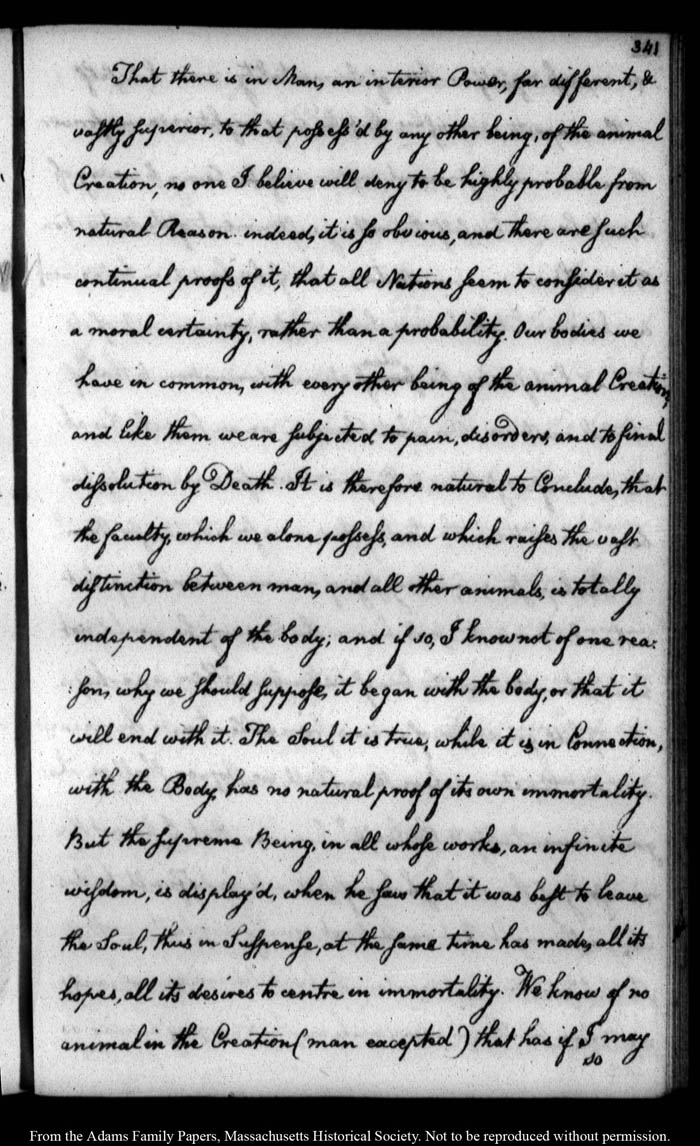 341
That there is in Man, an interior Power, far different, &
vastly superior, to that possess'd by any other being, of the animal
Creation, no one I believe will deny to be highly probable from
natural Reason. indeed, it is so obvious, and there are such
continual proofs of it, that all Nations seem to consider it as
a moral certainty, rather than a probability. Our bodies we
have in common, with every other being of the animal Creation,
and like them we are subjected to pain, disorders, and to final
dissolution by Death. It is therefore natural to Conclude, that
the faculty, which we alone possess, and which raises the vast
distinction between man, and all other animals, is totally
independent of the body; and if so, I know not of one rea:
:son, why we should suppose, it began with the body, or that it
will end with it. The Soul it is true, while it is in Connection,
with the Body, has no natural proof of its own immortality.
But the supreme Being, in all whose works, an infinite
wisdom, is display'd, when he saw that it was best to leave
the Soul, thus in Suspense, at the same time has made, all its
hopes, all its desires to centre in immortality. We know of no
animal in the Creation (man excepted) that has if I may
so
From the Adams Family Papers, Massachusetts Historical Society. Not to be reproduced without permission.